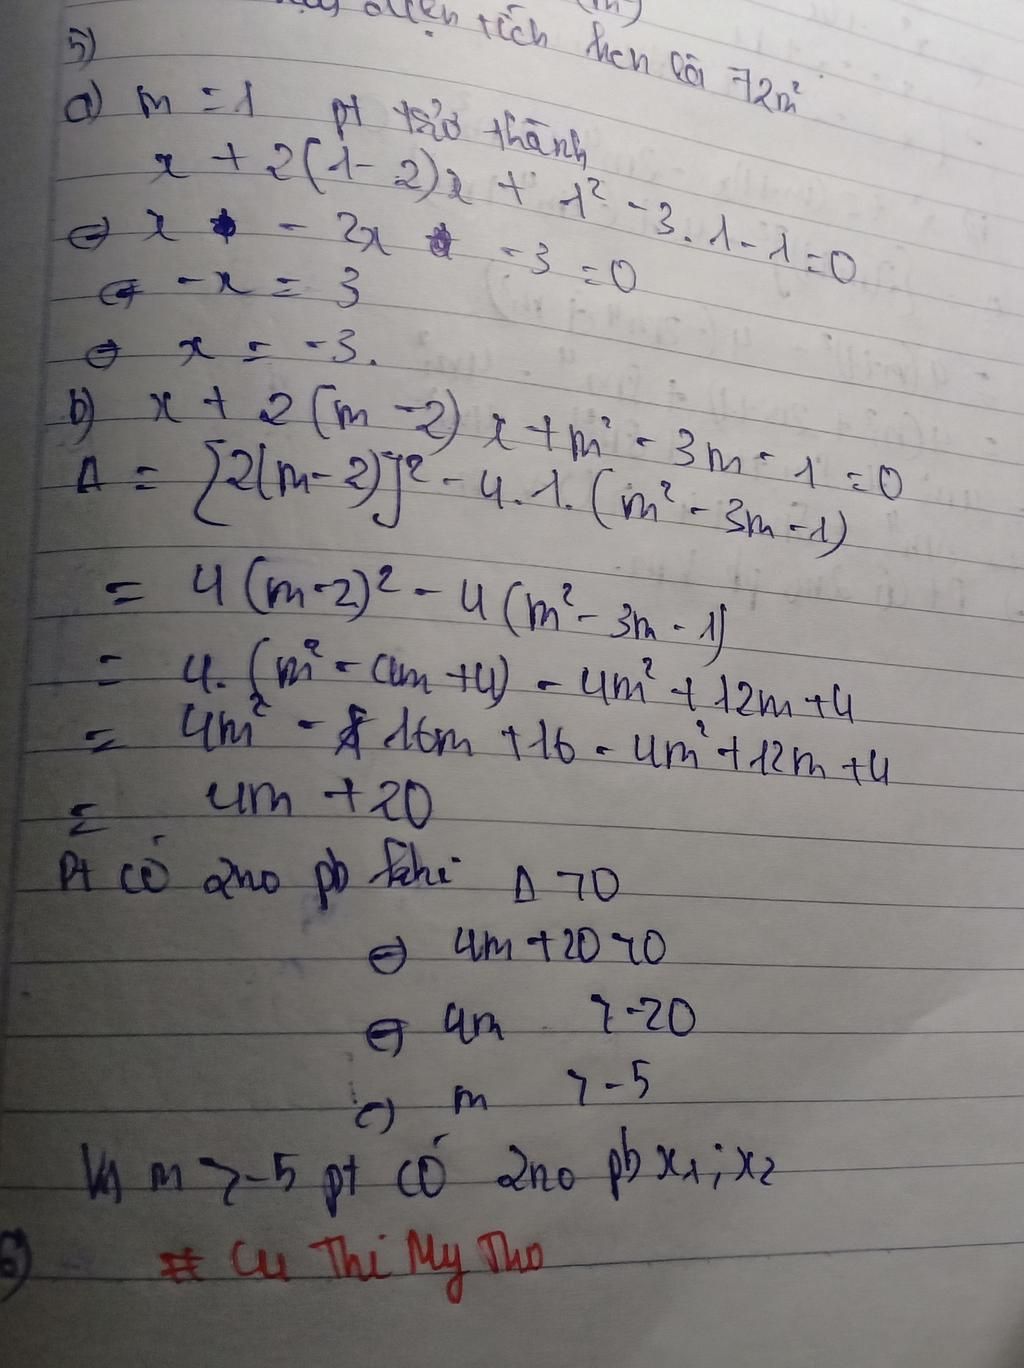 diện tích hcn là 72m²
5)
a) m = 1 pt trở thành
x + 2(1 - 2)x + 1² - 3.1 - 1 = 0
⇔ x - 2x - 3 = 0
⇔ -x = 3
⇔ x = -3.
b) x + 2(m - 2)x + m² - 3m - 1 = 0
Δ = [2(m - 2)]² - 4.1.(m² - 3m - 1)
= 4(m - 2)² - 4(m² - 3m - 1)
= 4.(m² - 4m + 4) - 4m² + 12m + 4
= 4m² - 16m + 16 - 4m² + 12m + 4
= 4m + 20
Pt có 2no pb khi Δ > 0
⇔ 4m + 20 > 0
⇔ 4m > -20
⇔ m > -5
Vậy m > -5 pt có 2no pb x₁; x₂
6) # Cu Thi My Tho